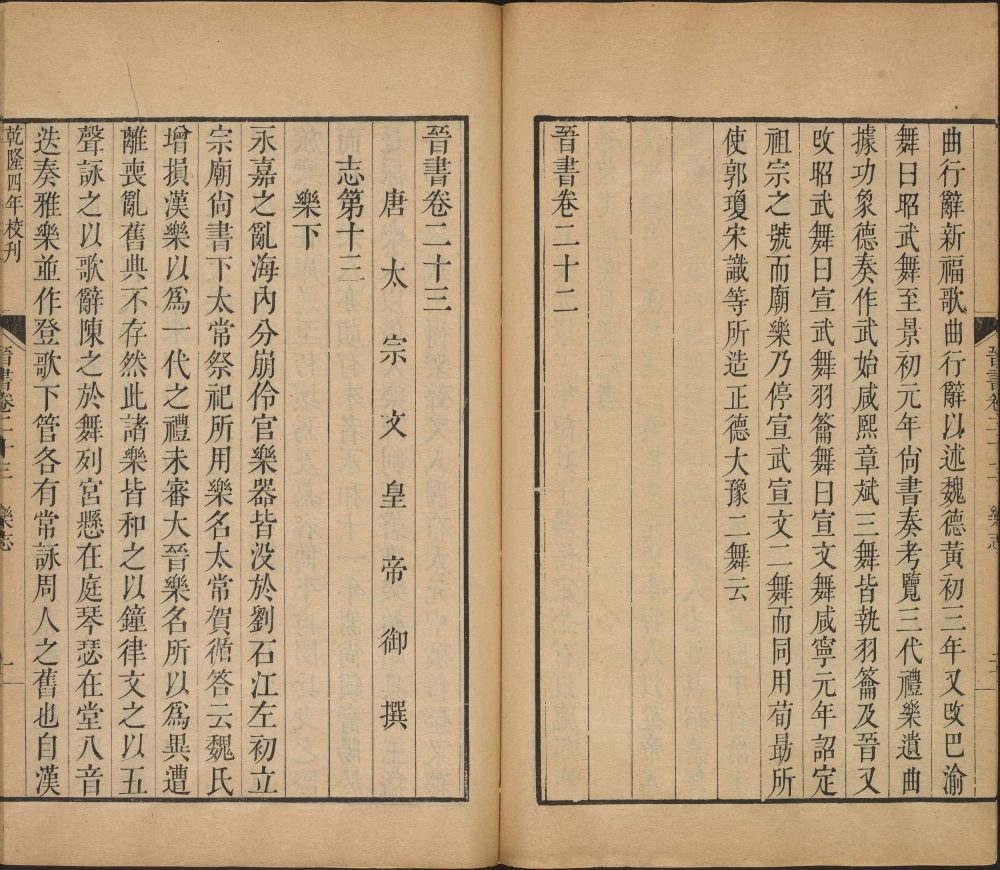 曲行辭新福歌曲行辭以述魏德黃初三年又改巴渝
舞曰昭武舞至景初元年尙書奏考覽三代禮樂遺曲
據功象德奏作武始咸熙章斌三舞皆執羽籥及晉又
改昭武舞曰宣武舞羽籥舞曰宣文舞咸寧元年詔定
祖宗之號而廟樂乃停宣武宣文二舞而同用荀勗所
使郭瓊宋識等所造正德大豫二舞云
晉書卷二十二
晉書卷二十三
唐太宗文皇帝御撰
志第十三
樂下
永嘉之亂海內分崩伶官樂器皆没於劉石江左初立
宗廟尙書下太常祭祀所用樂名太常賀循答云魏氏
增損漢樂以爲一代之禮未審大晉樂名所以爲異遭
離喪亂舊典不存然此諸樂皆和之以鐘律文之以五
聲詠之以歌辭陳之於舞列宮懸在庭琴瑟在堂八音
迭奏雅樂並作登歌下管各有常詠周人之舊也自漢
乾隆四年校刊
晉書卷二十三 樂志 一